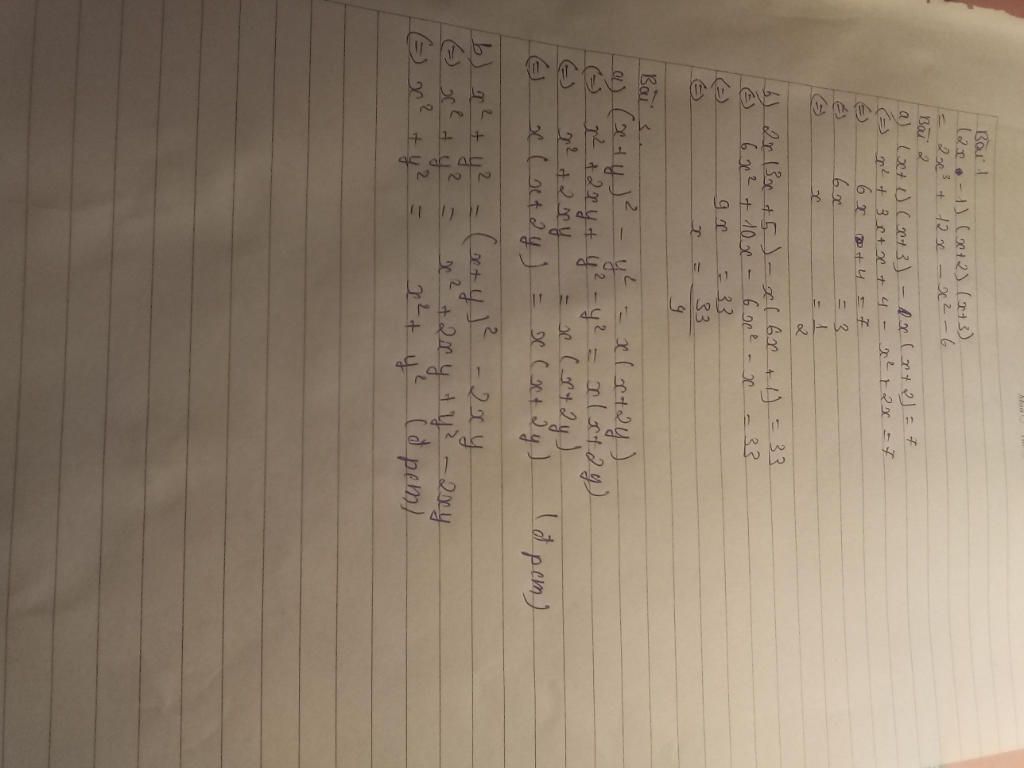 Bài 1
(2x - 1) (x+2) (x+3)
= 2x³ + 12x - x² - 6
Bài 2
a) (x+1) (x+3) - x (x+2) = 7
(=) x² + 3x + x + 4 - x² + 2x = 7
(=) 6x + 4 = 7
(=) 6x = 3
(=) x = 1/2
b) 2x (3x + 5) - x (6x + 1) = 33
(=) 6x² + 10x - 6x² - x = 33
(=) 9x = 33
(=) x = 33/9
Bài 3.
a) (x+y)² - y² = x (x+2y)
(=) x² + 2xy + y² - y² = x (x+2y)
(=) x² + 2xy = x (x+2y)
(=) x (x+2y) = x (x+2y) (đpcm)
b) x² + y² = (x+y)² - 2xy
(=) x² + y² = x² + 2xy + y² - 2xy
(=) x² + y² = x² + y² (đpcm)